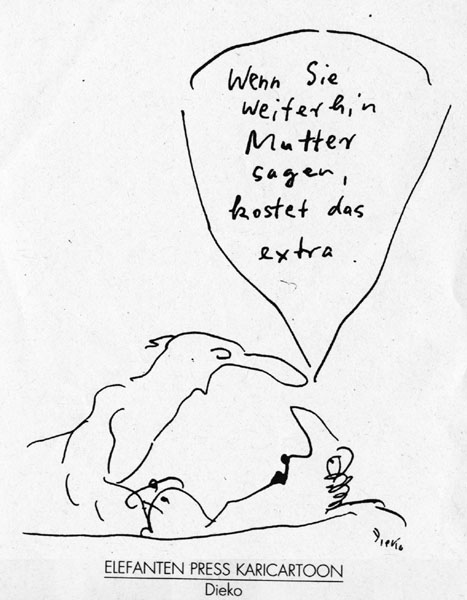 Wenn Sie
weiterhin
Mutter
sagen,
kostet das
extra.
Dieko
ELEFANTEN PRESS KARICARTOON
Dieko